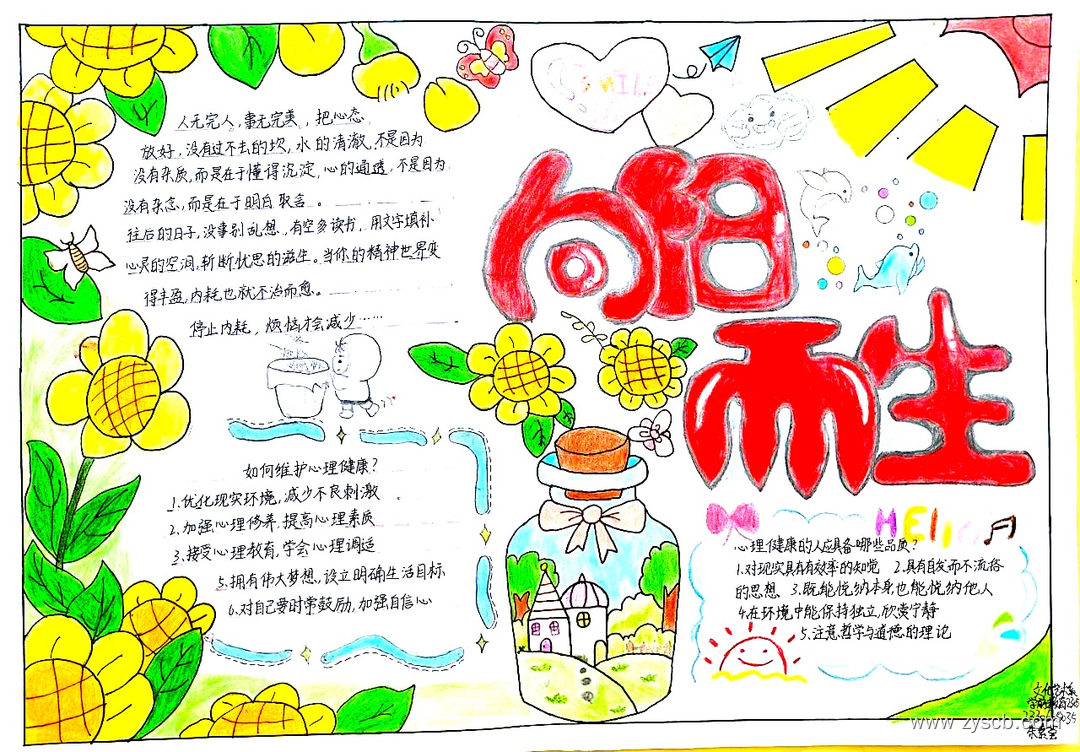 向阳
而生
SMILE
人无完人,事无完美,把心态
放好,没有过不去的坎,水的清澈,不是因为
没有杂质,而是在于懂得沉淀,心的通透,不是因为
没有杂念,而是在于明白取舍。
往后的日子,没事别乱想,有空多读书,用文字填补
心灵的空洞,斩断忧思的滋生。当你的精神世界变
得丰盈,内耗也就不治而愈。
停止内耗,烦恼才会减少……
如何维护心理健康?
1.优化现实环境,减少不良刺激。
2.加强心理修养,提高心理素质
3.接受心理教育,学会心理调适
5.拥有伟大梦想,设立明确生活目标
6.对自己要时常鼓励,加强自信心
HEllo
心理健康的人应具备哪些品质?
1.对现实具有有效率的知觉 2.具有自发而不流俗
的思想 3.既能悦纳本身,也能悦纳他人
4.在环境中能保持独立,欣赏宁静
5.注意哲学与道德的理论
www.zyscb.com